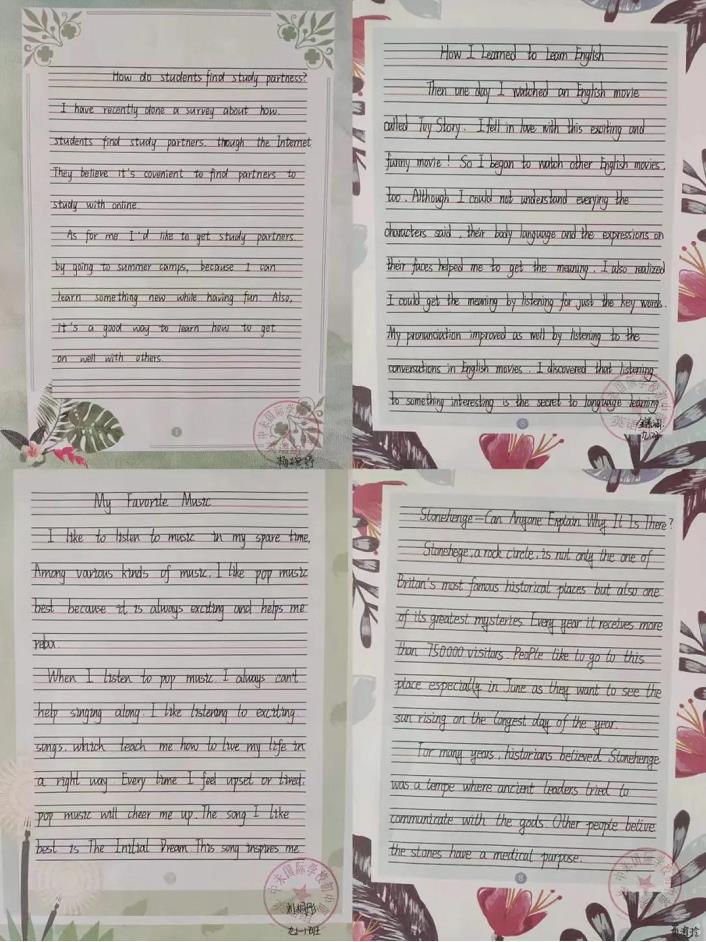 How do students find study partness?
I have recently done a survey about how.
students find study partners. though the Internet
They believe it's covenient to find partners to
study with online.
As for me I'd like to get study partners.
by going to summer camps, because I can
learn something new while having fun. Also,
it's a good way to learn how to get
on well with others.
How I Learned to Learn English
Then one day I watched an English movie
called Toy Story. I fell in love with this exciting and
funny movie! So I began to watch other English movies,
too. Although I could not understand everying the
characters said, their body language and the expressions on
their faces helped me to get the meaning. I also realized
I could get the meaning by listening for just the key words.
My pronunciation improved as well by listening to the
conversations in English movies. I discovered that listening
to something interesting is the secret to language learning.
My Favorite Music
I like to listen to music in my spare time.
Among various kinds of music, I like pop music
best because it is always exciting and helps me
relax.
When I listen to pop music I always can't
help singing along. I like listening to exciting
songs, which teach me how to live my life in
a right way. Every time I feel upset or tired,
pop music will cheer me up. The song I like
best is The Initial Dream. This song inspires me
Stonehenge—Can Anyone Explain Why It Is There?
Stonehege, a rock circle, is not only the one of
Britan's most famous historical places but also one
of its greatest mysteries. Every year it receives more
than 750000 visitors. People like to go to this
place especially in June as they want to see the
sun rising on the longest day of the year.
For many years, historians believed Stonehenge
was a tempe where ancient leaders tried to
communicate with the gods. Other people belive
the stones have a medical purpose.